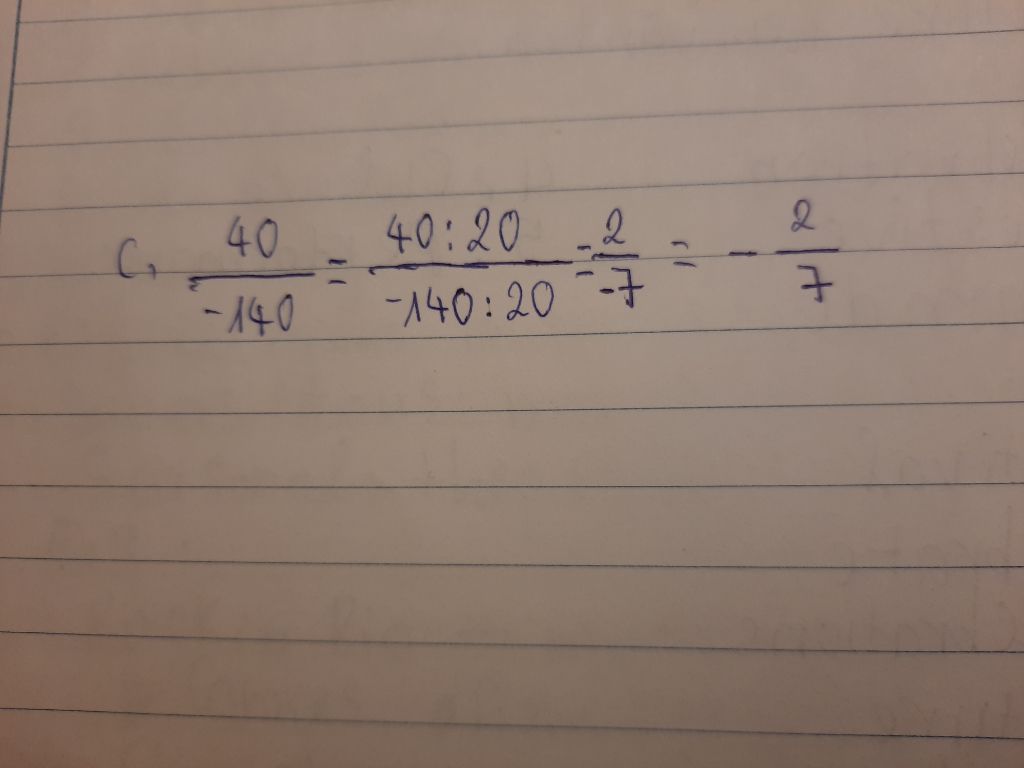 c, 40/-140 = 40:20/-140:20 = 2/-7 = - 2/7